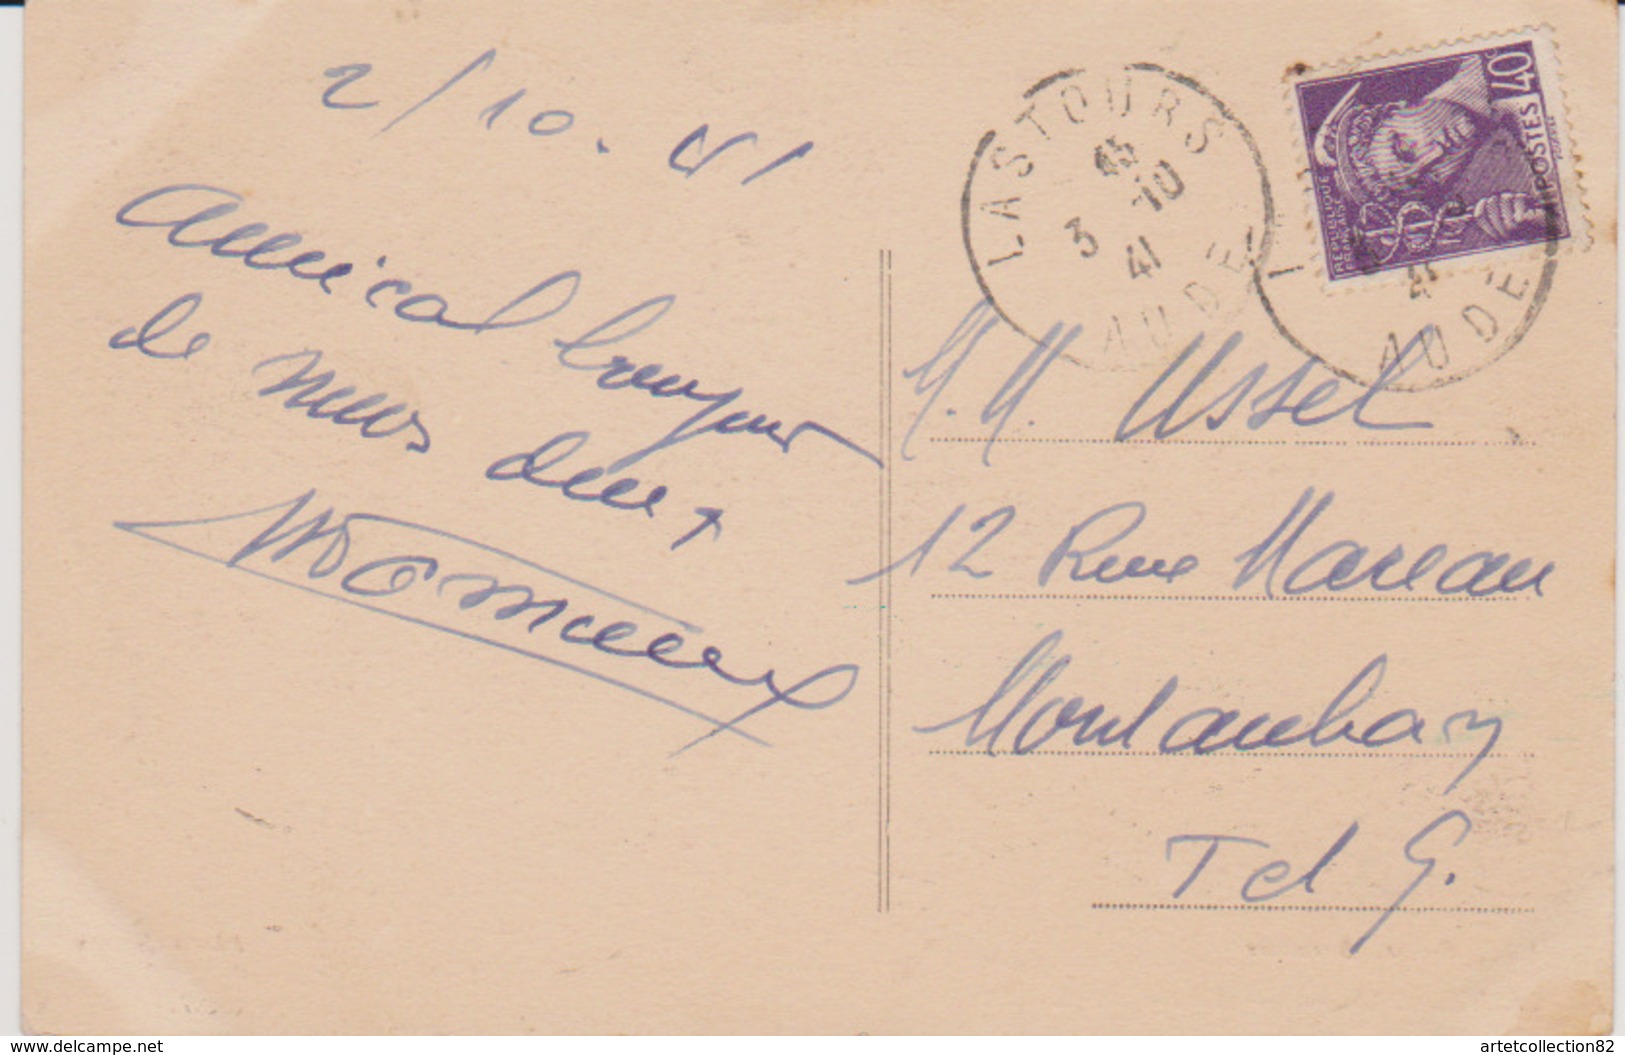 2/10.41
amical bonjour
de nous deux
M.M. Ussel
12 Rue Marceau
Montauban
T et G.
LASTOURS
15
3 -10
41
AUDE
REPUBLIQUE
FRANÇAISE
POSTES 40c
41
AUDE
www.delcampe.net
artetcollection82